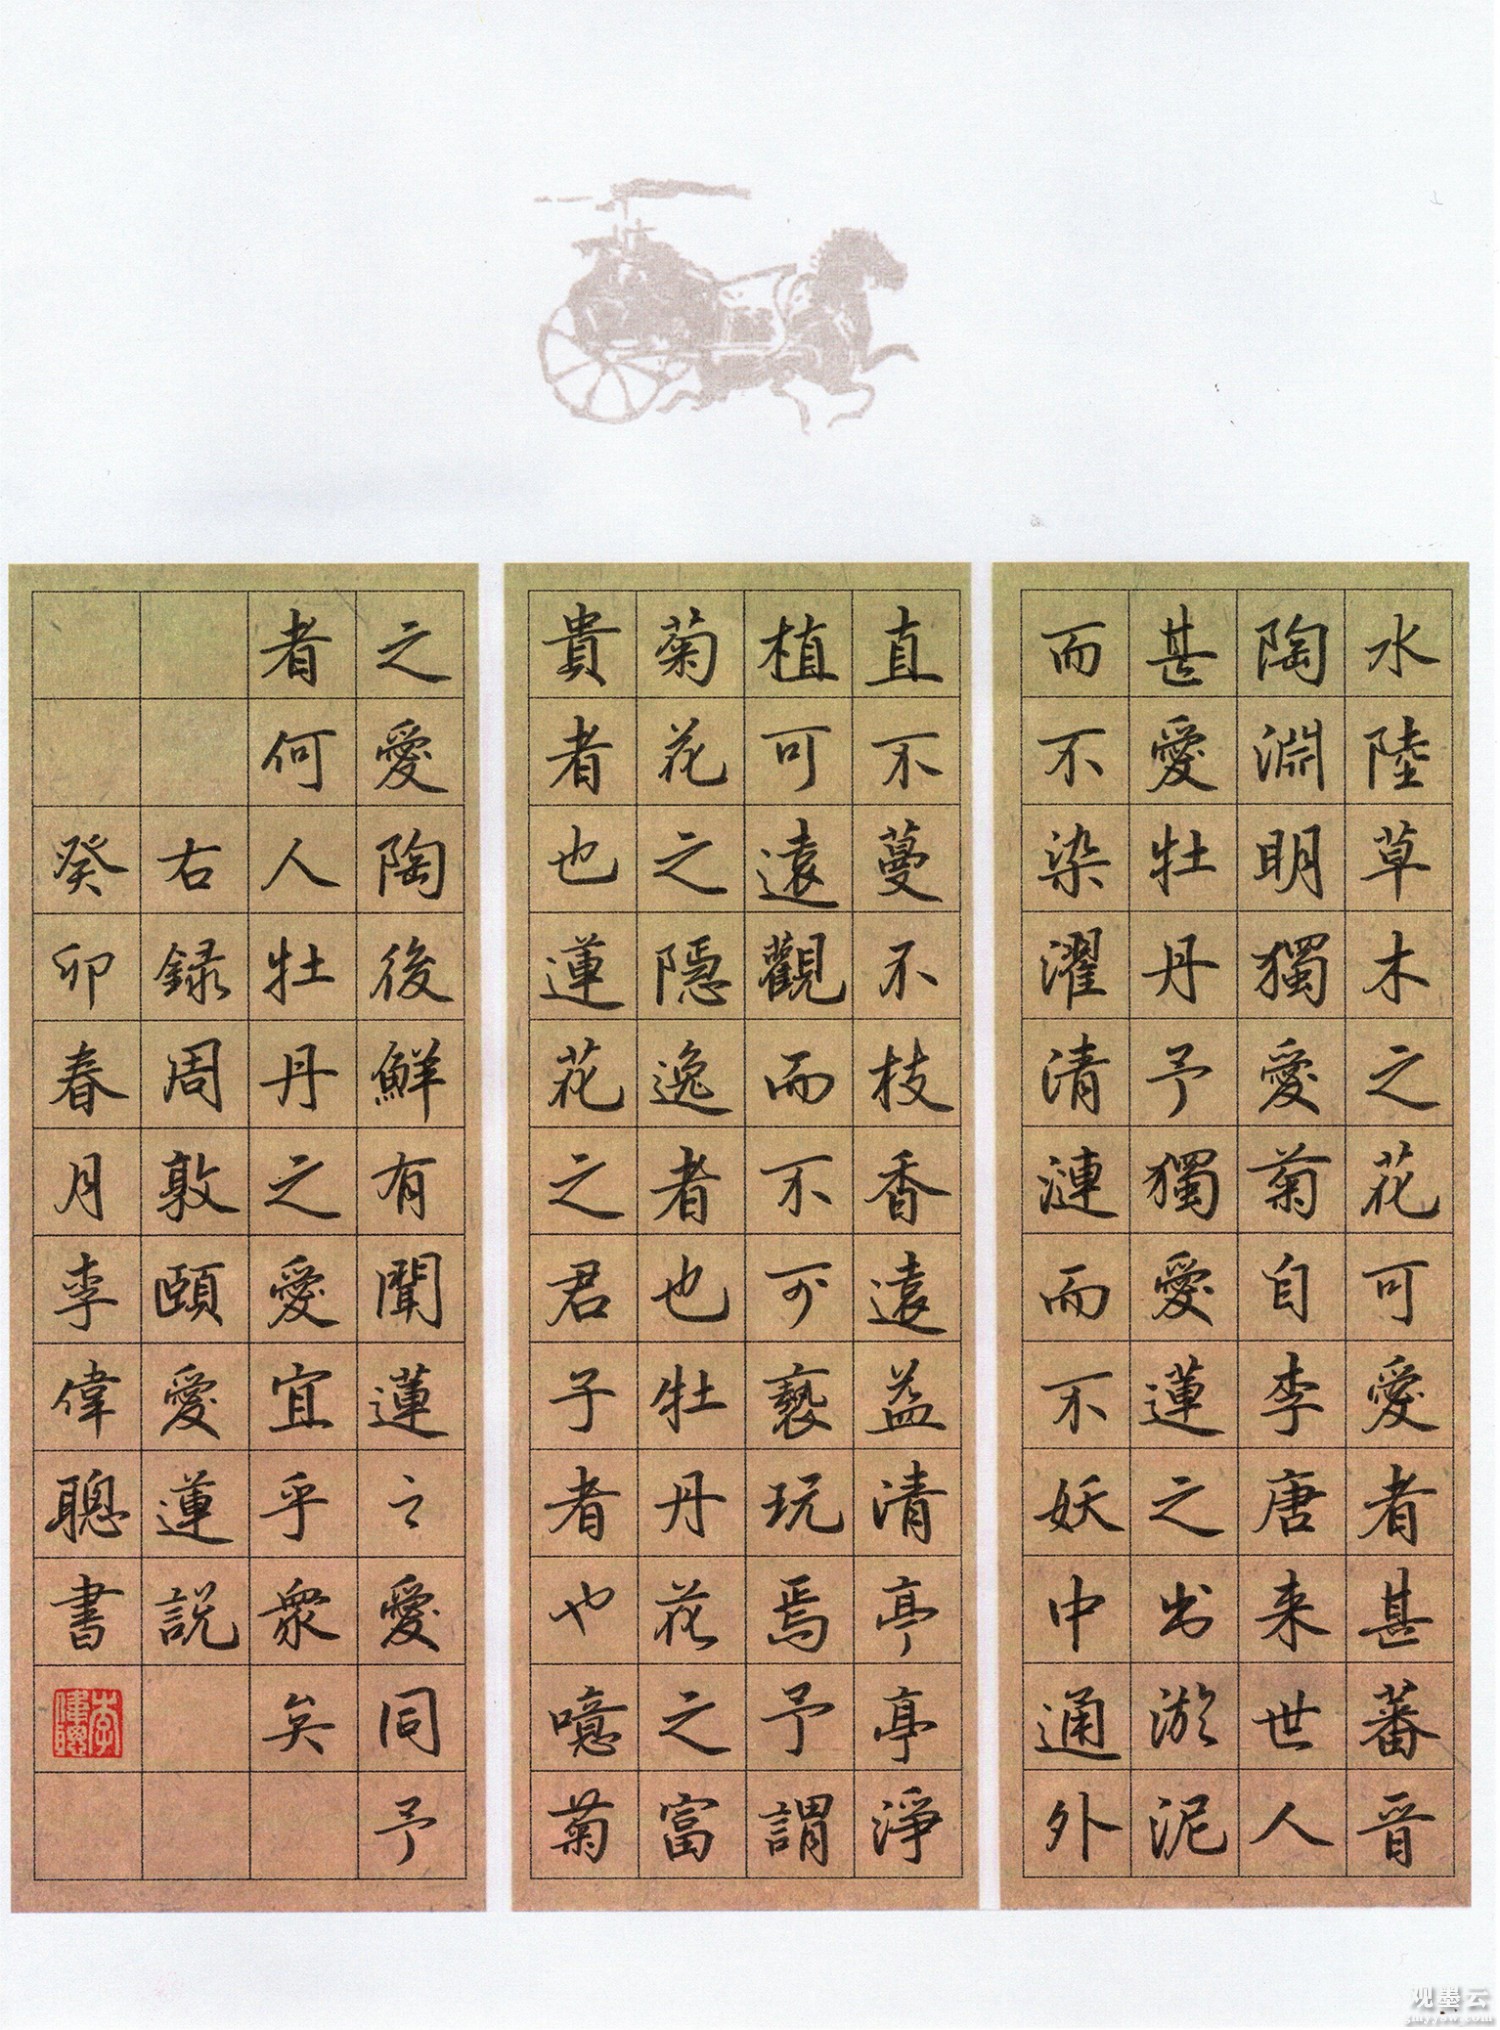 水陸草木之花可愛者甚蕃晉
陶淵明獨愛菊自李唐来世人
甚愛牡丹予獨愛蓮之出淤泥
而不染濯清漣而不妖中通外
直不蔓不枝香遠益清亭亭淨
植可遠觀而不可褻玩焉予謂
菊花之隱逸者也牡丹花之富
貴者也蓮花之君子者也噫菊
之愛陶後鮮有聞蓮之愛同予
者何人牡丹之愛宜乎衆矣
右録周敦頤愛蓮説
癸卯春月李偉聰書
李偉聰
观墨云